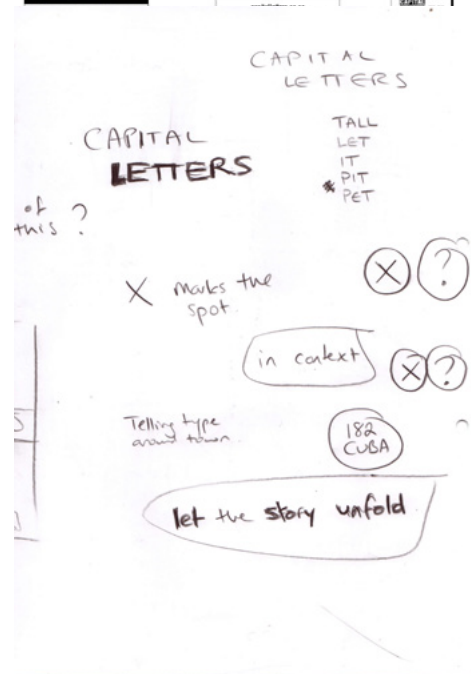 CAPITAL
CAPITAL
LETTERS
CAPITAL
LETTERS
TALL
LET
IT
PIT
* PET
of
this ?
X marks the
spot.
X ?
in context
X ?
Telling type
around town.
182
CUBA
let the story unfold